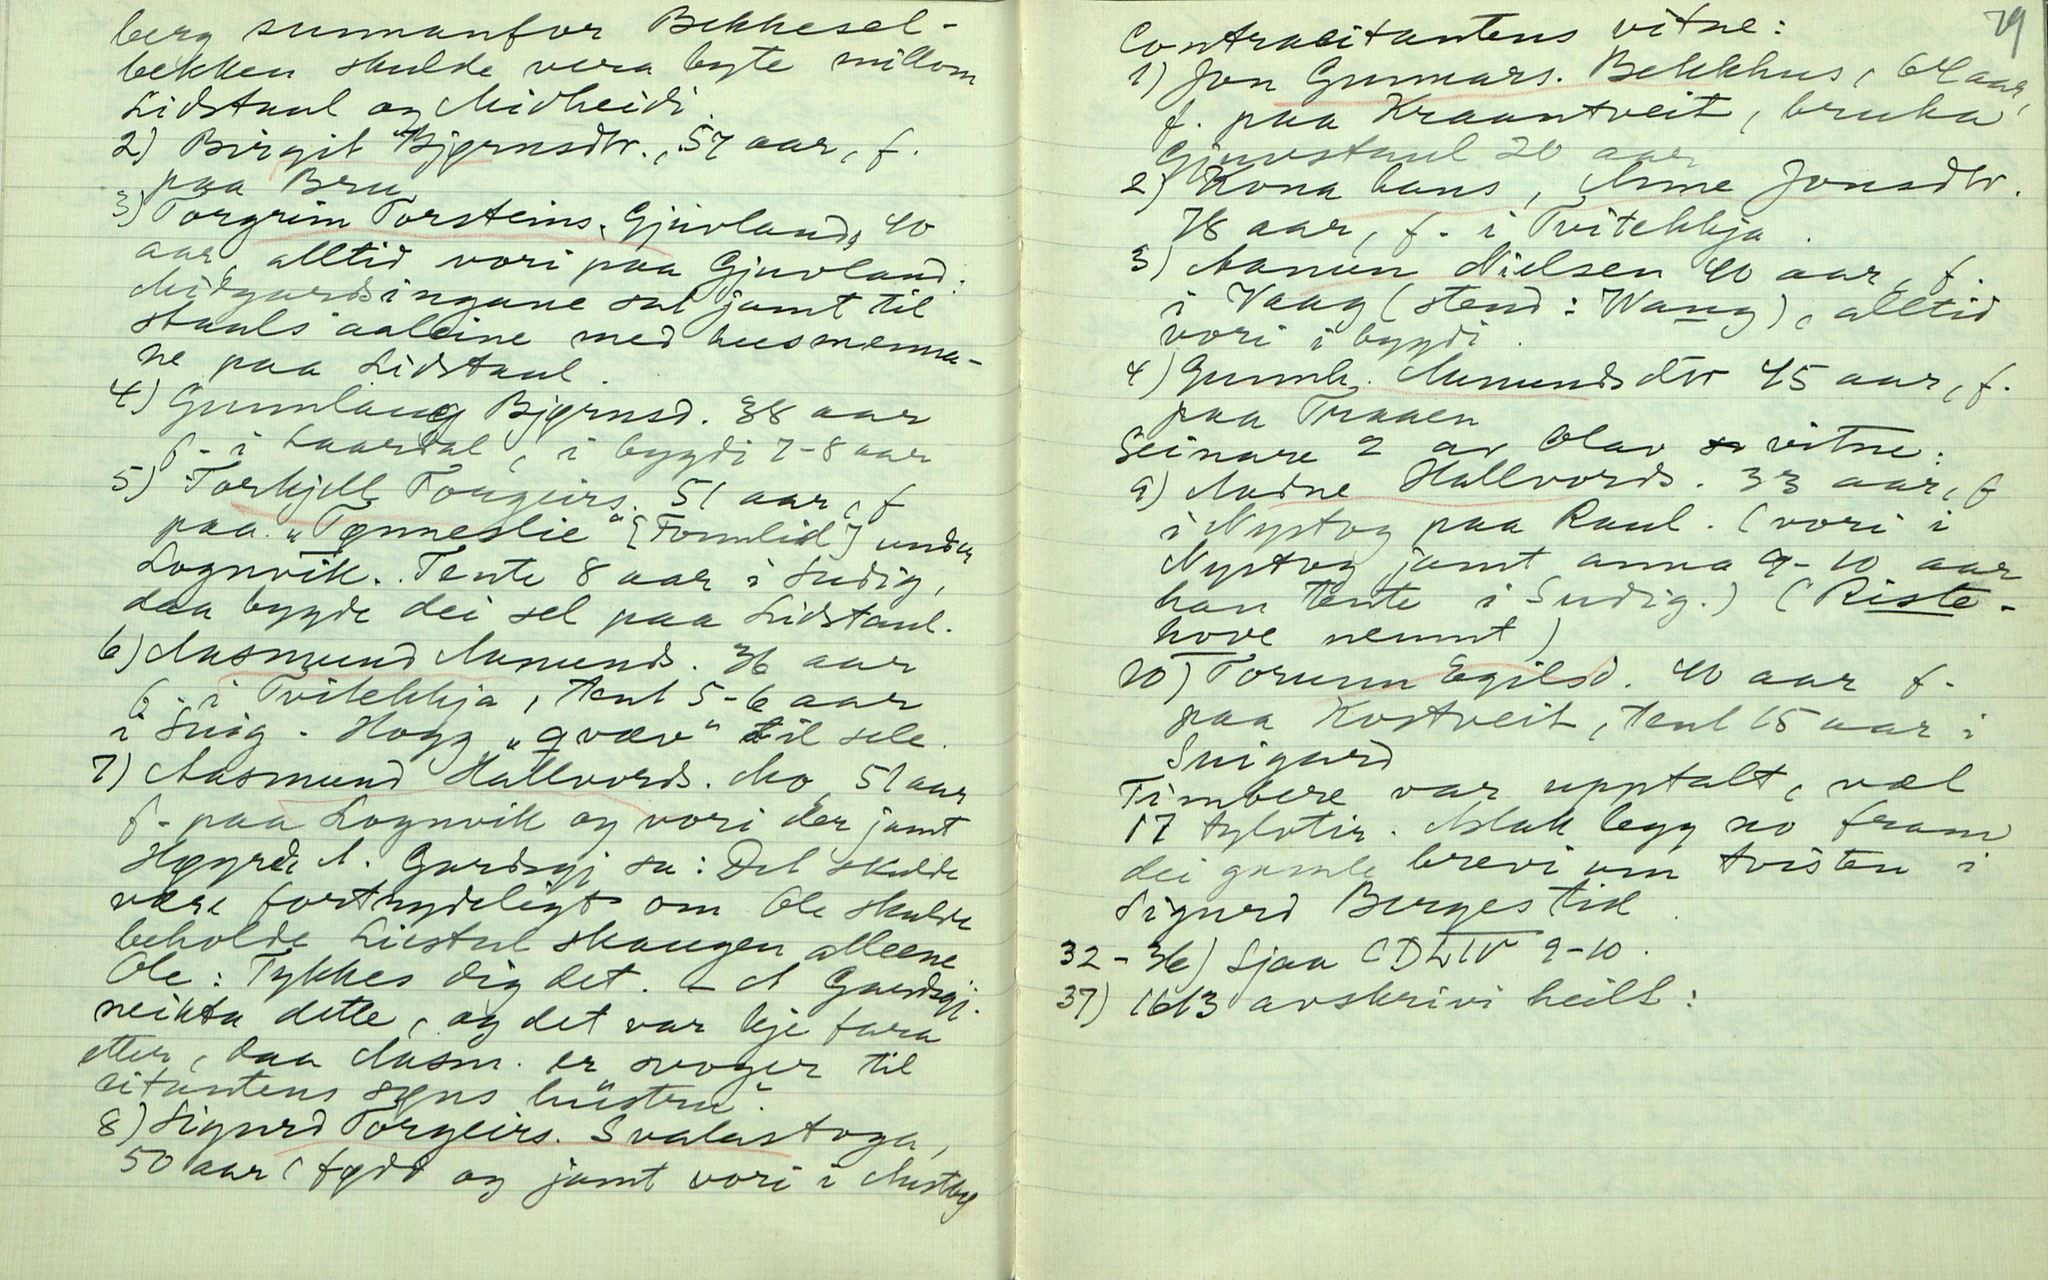 berg sunnanfor Bekkesel-
bekken skulde vera byte millom
Lidstaul og Midheidi.
2) Birgit Bjørnsdtr., 57 aar, f.
paa Bru
3) Torgrim Torsteins. Gjuvland, 40
aar, alltid vori paa Gjuvland:
Midgardsingane sat jamt til
stauls aaleine med husmenna-
ne paa Lidstaul.
4) Gunnlaug Bjørnsd. 38 aar
f. i Laardal, i bygdi 7-8 aar
5) Torkjell Tougeirs. 51 aar, f
paa "Tønneslie" [Tomlid] under
Lognvik. Tente 8 aar i Sudig,
daa bygde dei sel paa Lidstaul.
6) Aasmund Aamunds. 36 aar
f. i Tvitekkja, tent 5-6 aar
i Suig. Hogg "qvæv" til sele.
7) Aasmund Hallvords. Mo, 51 aar
f. paa Lognvik og vori der jamt
Høyrde A. Gardsgj sa: Det skulde
være fortrydeligt om Ole skulde
beholde Liestul skaugen alleene
Ole: Tykkes dig det. - A Gardsgj.
neikta dette, og det var kje fara
etter, daa Aasm. er svoger til
citantens søns hustru".
8) Sigurd Torgeirs. Svalastoga,
50 aar (fødd og jamt vori i Austbø
79
Contracitantens vitne:
1) Jon Gunnars. Bekkhus, 64 aar,
f. paa Kraantveit, bruka
Gjuvstaul 20 aar
2) Kona hans, Anne Jonsdtr.
78 aar, f. i Tvitekkja.
3) Aamun Nielsen 40 aar, f.
i Vaag (stend: Waug), alltid
vori i bygdi.
4) Gunnh. Aamundsdtr 45 aar, f.
paa Traaen
Seinare 2 av Olav s vitne:
9) Aadne Hallvords. 33 aar, f
i Nystog paa Raul. (vori i
Nystog jamt anna 9-10 aar
han tente i Sudig.) (Riste-
hove nemnt)
10) Torunn Egilsd. 40 aar f.
paa Kostveit, tent 15 aar i
Suigard
Timbere var upptalt, væl
17 tylvtir. Aslak legg no fram
dei gamle brevi um tvisten i
Sigurd Berges tid.
32-36) Sjaa CDLIV 9-10.
37) 1613 avskrivi heilt: